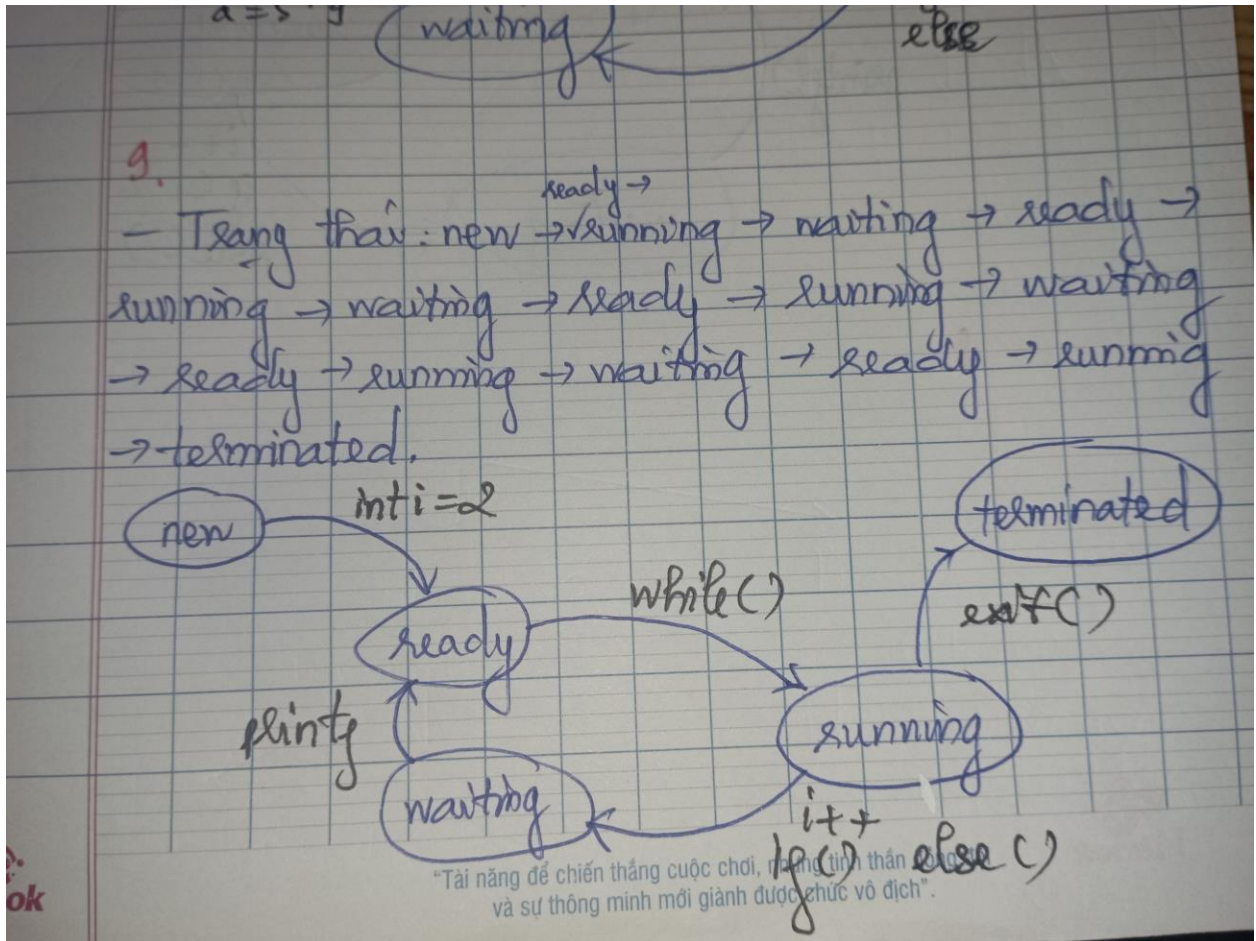 a = 5 * 9
waiting
else
9.
ready →
- Trạng thái: new → running → waiting → ready →
running → waiting → ready → running → waiting
→ ready → running → waiting → ready → running
→ terminated.
int i = 2
new
terminated
while()
exit()
ready
printf
running
waiting
i++
if() else()
"Tài năng để chiến thắng cuộc chơi, nhưng tinh thần đồng đội
và sự thông minh mới giành được chức vô địch".
ok